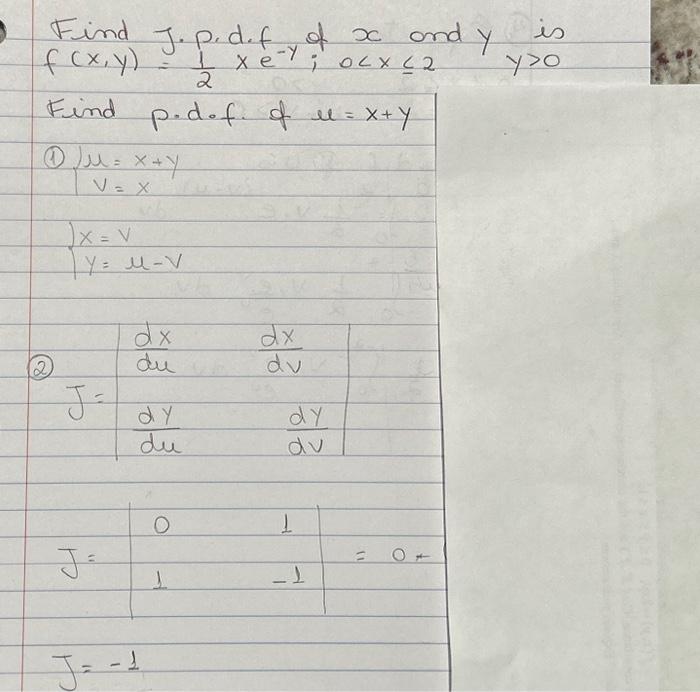 Find J.p.d.f of x and y is
f(x,y) = 1/2 x e^-y ; 0<x≤2 y>0
Find p.d.f. of u = x+y
① { u = x+y
v = x
{ x = v
y = u-v
② J = | dx/du dx/dv |
| dy/du dy/dv |
J = | 0 1 | = 0 -
| 1 -1 |
J = -1